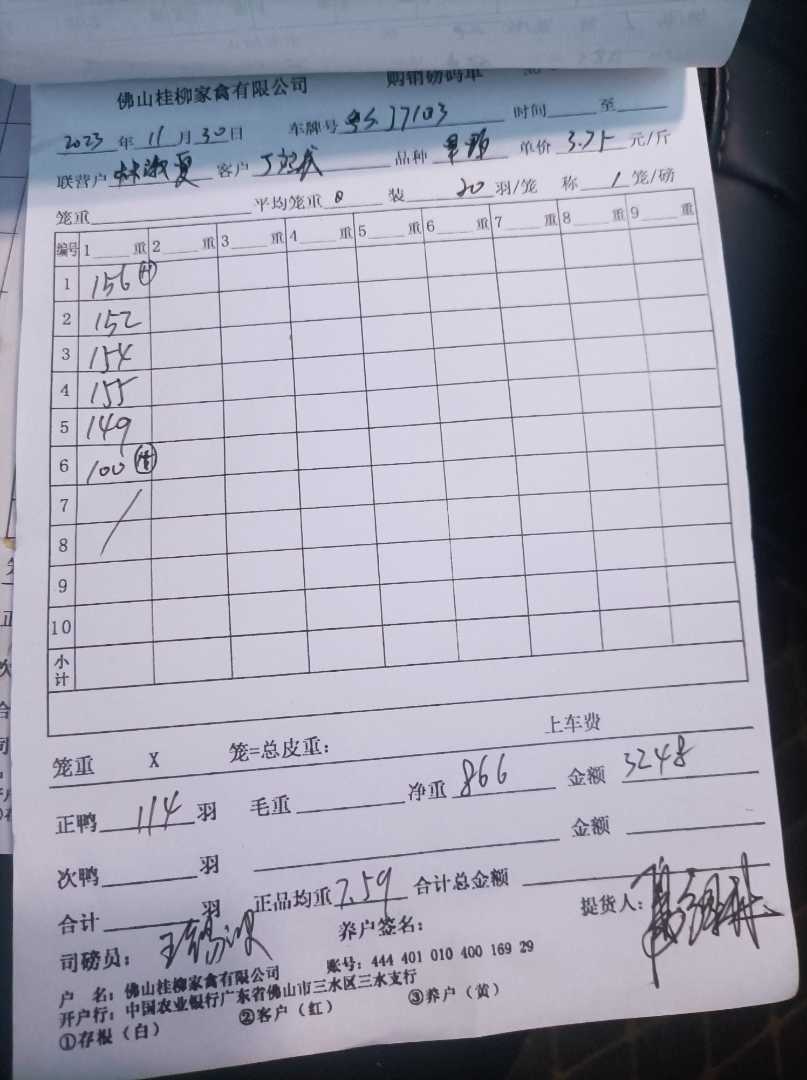 佛山桂柳家禽有限公司 购销磅码单
2023 年 11 月 30 日 车牌号 J7103 时间 至
联营户 林淑夏 客户 品种 单价 3.75 元/斤
笼重 平均笼重 8 装 20 羽/笼 称 1 笼/磅
编号 1 重 2 重 3 重 4 重 5 重 6 重 7 重 8 重 9 重
1 156
2 152
3 154
4 155
5 149
6 100
7
8
9
10
小计
笼重 X 笼=总皮重： 上车费
正鸭 114 羽 毛重 净重 866 金额 3248
次鸭 羽 金额
合计 羽 正品均重 7.59 合计总金额
司磅员： 养户签名： 提货人：
户 名：佛山桂柳家禽有限公司 账号：444 401 010 400 169 29
开户行：中国农业银行广东省佛山市三水区三水支行
①存根（白） ②客户（红） ③养户（黄）